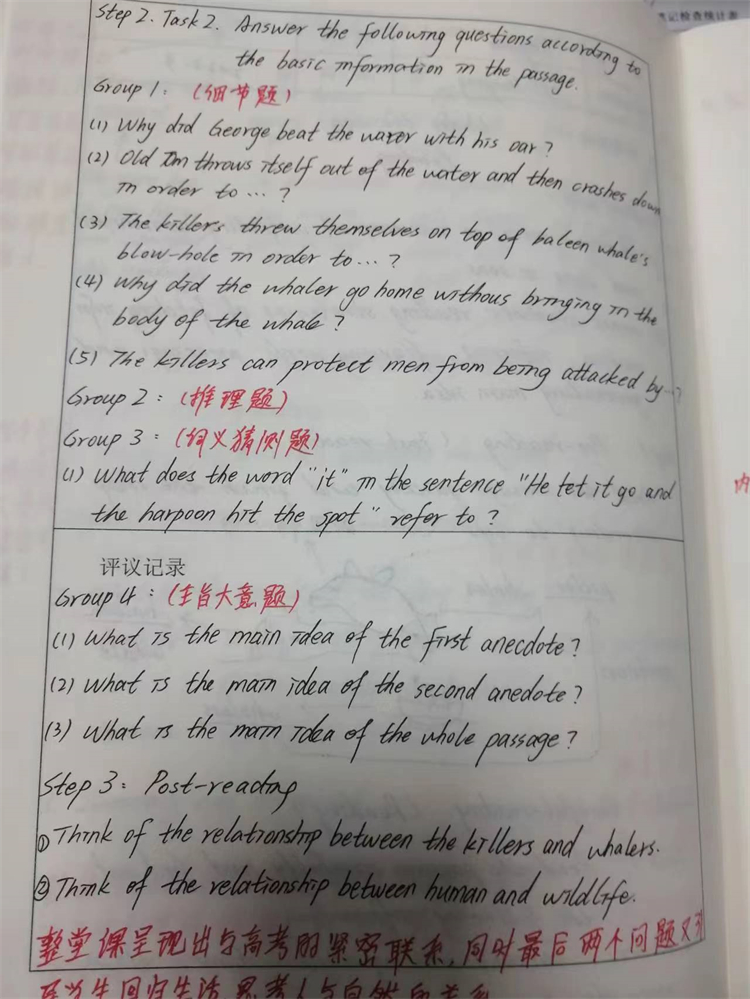 笔记检查统计表
Step 2. Task 2. Answer the following questions according to
the basic information in the passage.
Group 1: (细节题)
(1) Why did George beat the water with his oar?
(2) Old Tom throws itself out of the water and then crashes down
in order to ... ?
(3) The killers threw themselves on top of baleen whale's
blow-hole in order to ... ?
(4) Why did the whaler go home withous bringing in the
body of the whale?
(5) The killers can protect men from being attacked by ?
Group 2: (推理题)
Group 3: (词义猜测题)
(1) What does the word "it" in the sentence "He tet it go and
the harpoon hit the spot" refer to?
评议记录
Group 4: (主旨大意题)
(1) What is the main idea of the first anecdote?
(2) What is the main idea of the second anedote?
(3) What is the main idea of the whole passage?
Step 3: Post-reading
① Think of the relationship between the killers and whalers.
② Think of the relationship between human and wildlife.
整堂课呈现出与高考的紧密联系,同时最后两个问题又引
学生回归生活思考人与自然的关系
内